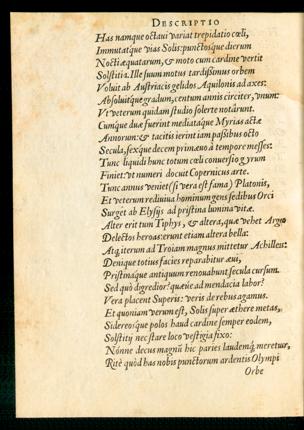 DESCRIPTIO
Has namque octaui variat trepidatio cœli,
Immutatque vias Solis: punctosque dierum
Noctiæquatarum, & moto cum cardine vertit
Solstitia. Ille suum motus tardißimus orbem
Voluit ab Austriacis gelidos Aquilonis ad axes:
Absoluitque gradum, centum annis circiter, vnum:
Vt veterum quidam studio solerte notârunt.
Cumque duæ fuerint mediataque Myrias actæ
Annorum: & tacitis ierint iam paßibus octo
Secula, sexque decem primæuo à tempore messes:
Tunc liquidi hunc totum cœli conuersio gyrum
Finiet: vt numeri docuit Copernicus arte.
Tunc annus veniet (si vera est fama) Platonis,
Et veterum rediuiua hominum gens sedibus Orci
Surget ab Elysijs ad pristina lumina vitæ.
Alter erit tum Tiphys, & altera, quæ vehat Argo
Delectos heroas: erunt etiam altera bella:
Atq, iterum ad Troiam magnus mittetur Achilleus:
Denique totius facies reparabitur æui,
Pristinaque antiquum renouabunt secula cursum.
Sed quò digredior? quæue ad mendacia labor?
Vera placent Superis: veris de rebus agamus.
Et quoniam verum est, Solis super æthere metas,
Sidereosque polos haud cardine semper eodem,
Solstitij nec stare loco vestigia fixo:
Nónne decus magnũ hic paries laudemq́ meretur,
Ritè quòd has nobis punctorum ardentis Olympi
Orbe